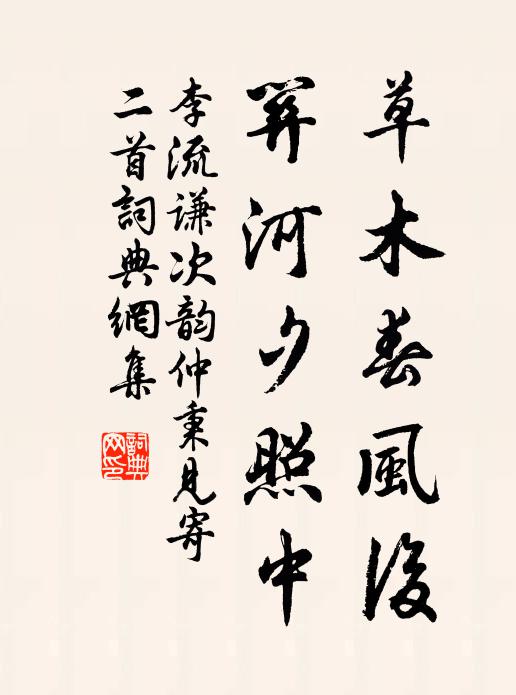 草木春風後
關河夕照中
李流谦次韵仲秉見寄
二首詞典網集
詞典
网印